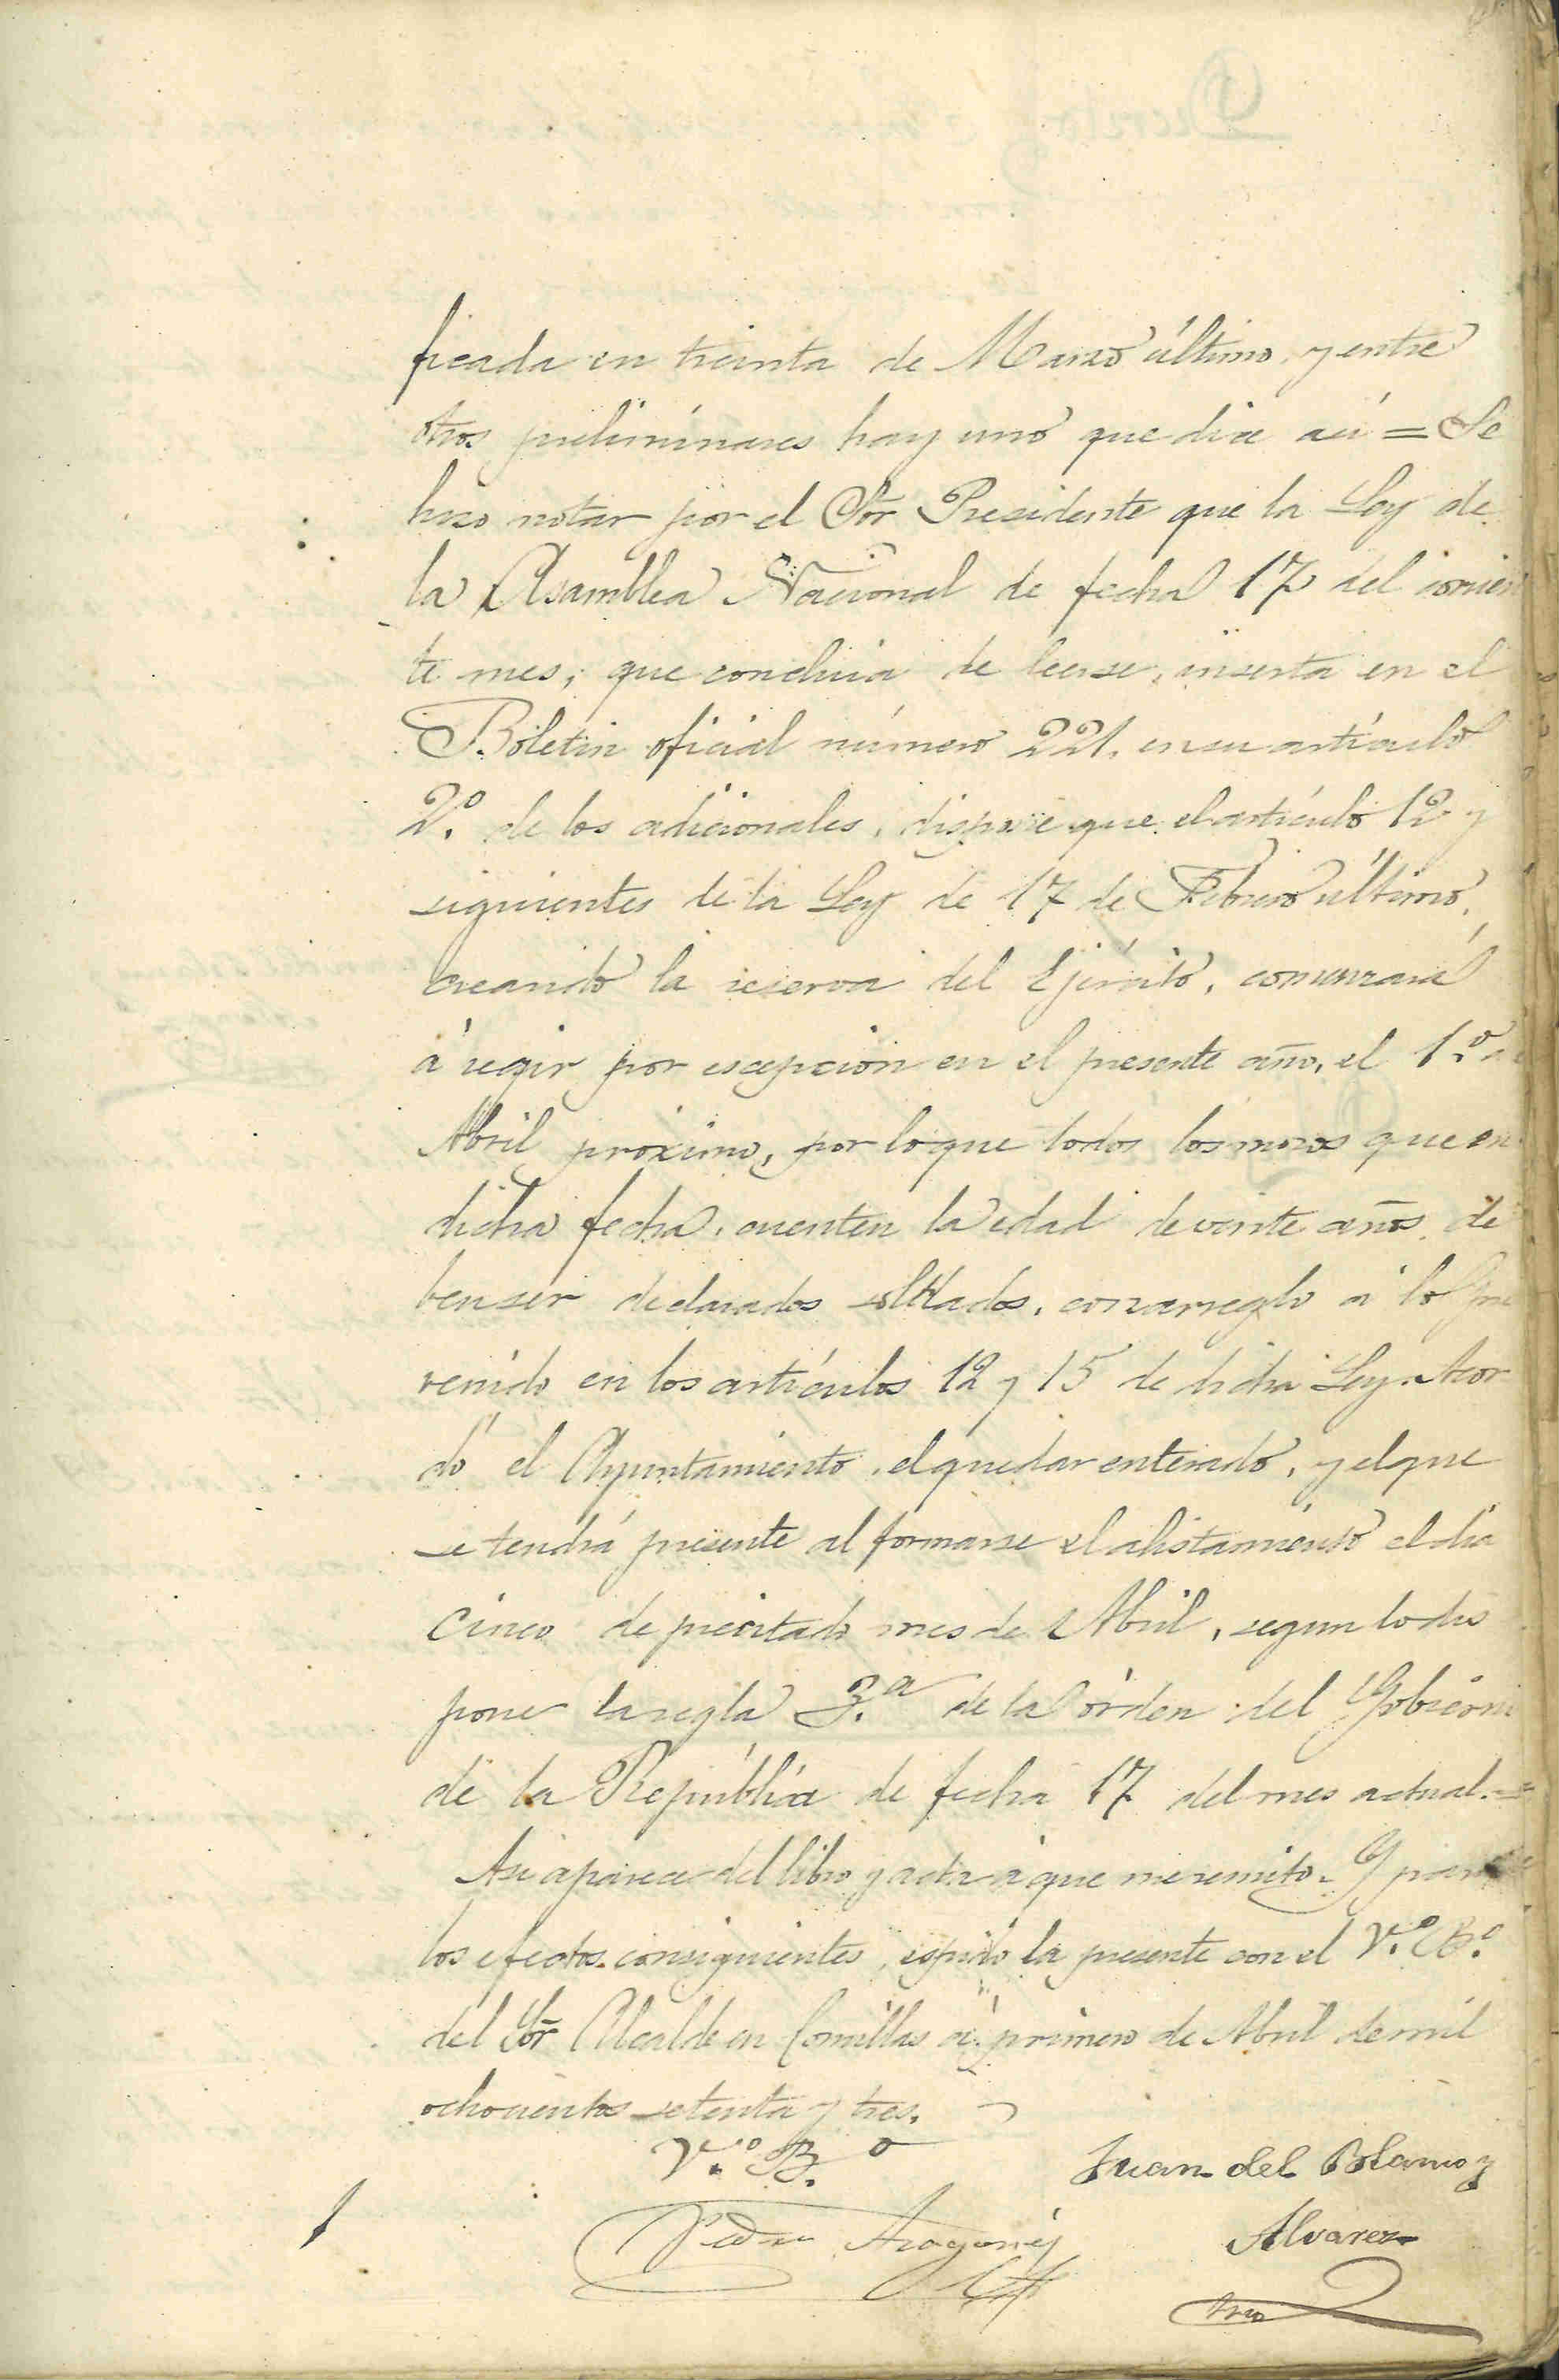 ficada en treinta de Marzo último, y entre
otros preliminares hay uno que dice así = Se
hizo notar por el Sõr Presidente que la Ley de
la Asamblea Nacional de fecha 17 del corrien
te mes, que concluia de leerse, inserta en el
Boletin oficial número 221, en su artículo
2.º de los adicionales, dispone que el artículo 12 y
siguientes de la Ley de 17 de Febrero último,
creando la reserva del Ejército, comenzará
á regir por escepcion en el presente año, el 1.º de
Abril próximo, por lo que todos los mozos que en
dicha fecha, cuenten la edad de veinte años, de
ben ser declarados soldados, con arreglo á lo pre
venido en los artículos 12 y 15 de dicha Ley. Acor
dó el Ayuntamiento, el quedar enterado, y el que
se tendrá presente al formarse el alistamiento el dia
cinco de precitado mes de Abril, segun lo dis
pone la regla 3.ª de la órden del Gobierno
de la República de fecha 17 del mes actual.=
Asi aparece del libro y acta á que me remito. Y para
los efectos consiguientes, espido la presente con el V.º B.º
del Sõr Alcalde en Comillas á primero de Abril de mil
ochocientos setenta y tres.
V.º B.º
Juan del Solamo y
Pedro Aragonés
Alvarez
Srio